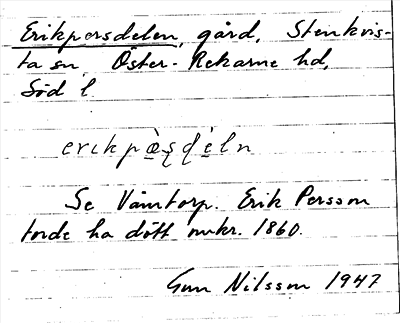 Erikpersdelen, gård, Stenkvis-
ta sn, Öster-Rekarne hd,
Söd l
erikpæ̀ʂḍéln
Se Våmtorp. Erik Persson
torde ha dött omkr. 1860.
Gun Nilsson 1947